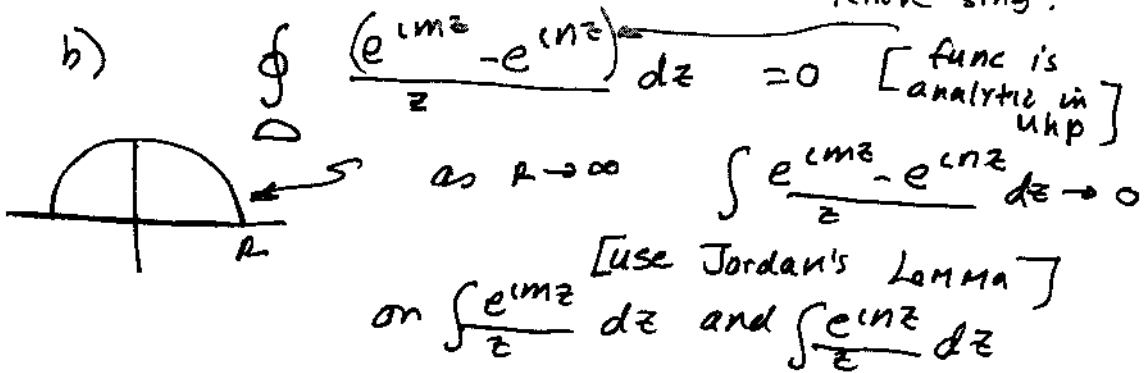 sing.
b) ∮ (e^{imz} - e^{inz})/z dz = 0 [func is analytic in uhp]
R
as R → ∞ ∫ (e^{imz} - e^{inz})/z dz → 0
[use Jordan's Lemma]
on ∫ e^{imz}/z dz and ∫ e^{inz}/z dz